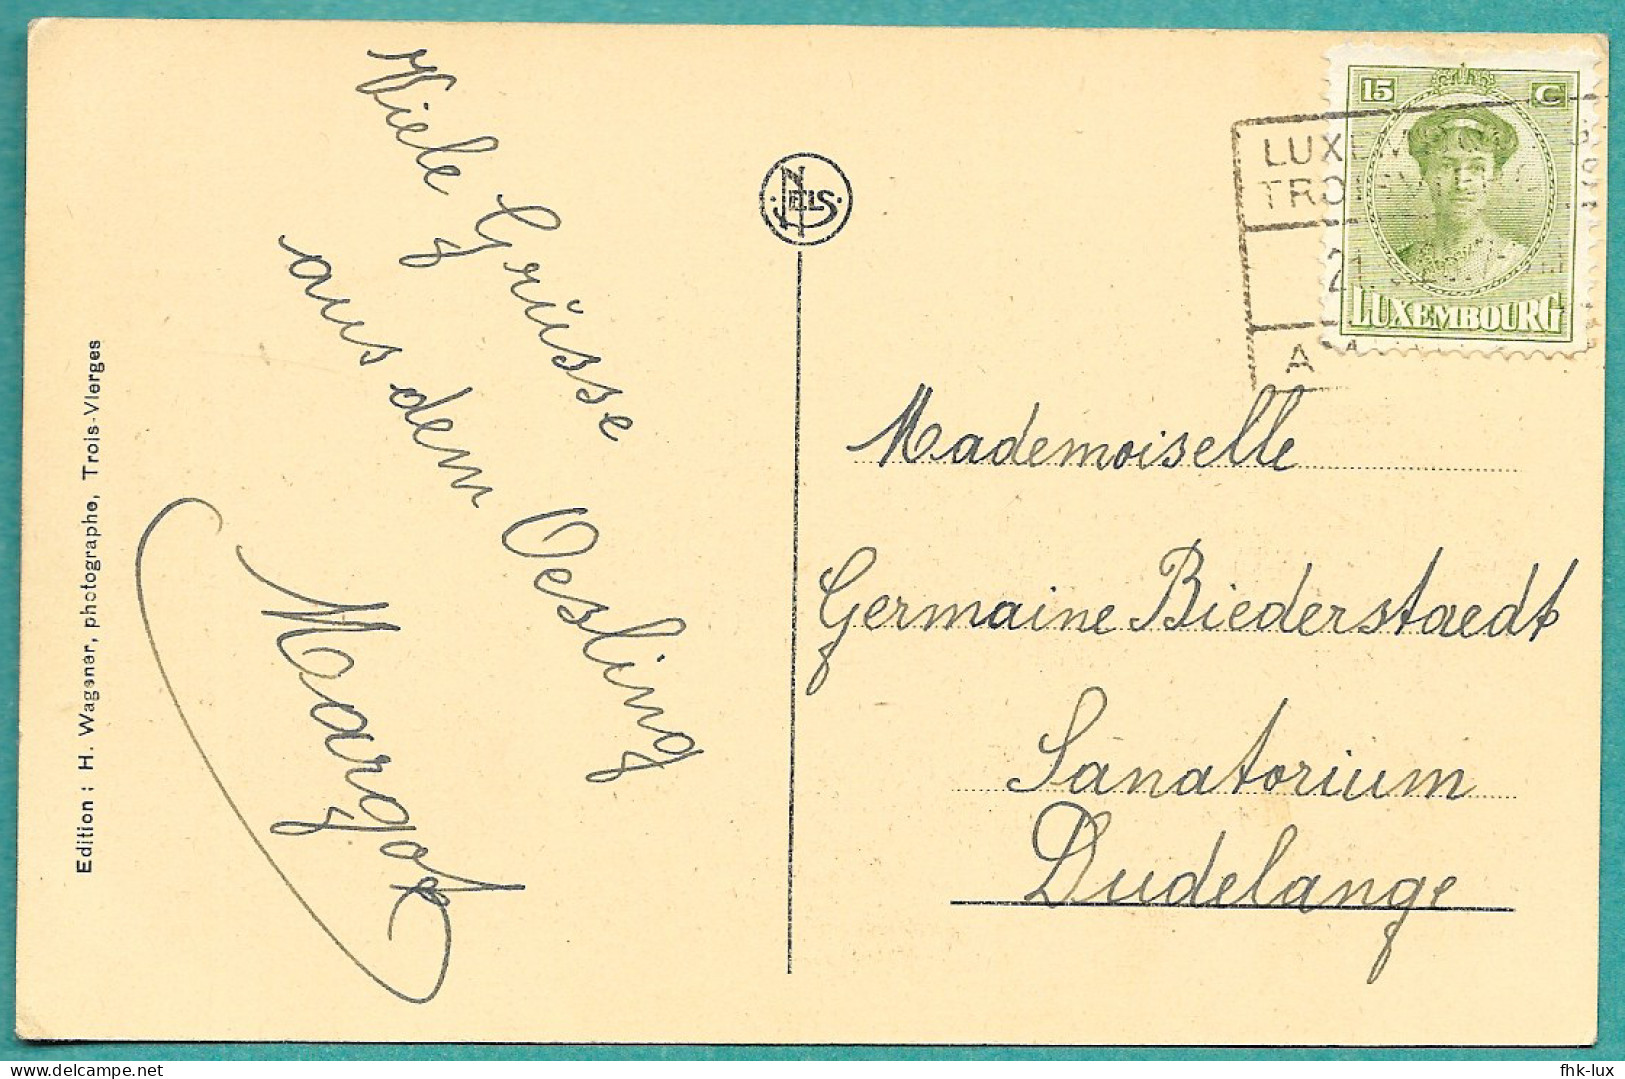 Viele Grüsse
aus dem Oesling
Margot
Edition : H. Wagener, photographe, Trois-Vierges
NELS
15 C
LUXEMBOURG
LUXEMBOURG
A
Mademoiselle
Germaine Biederstaedt
Sanatorium
Dudelange
fhk-lux